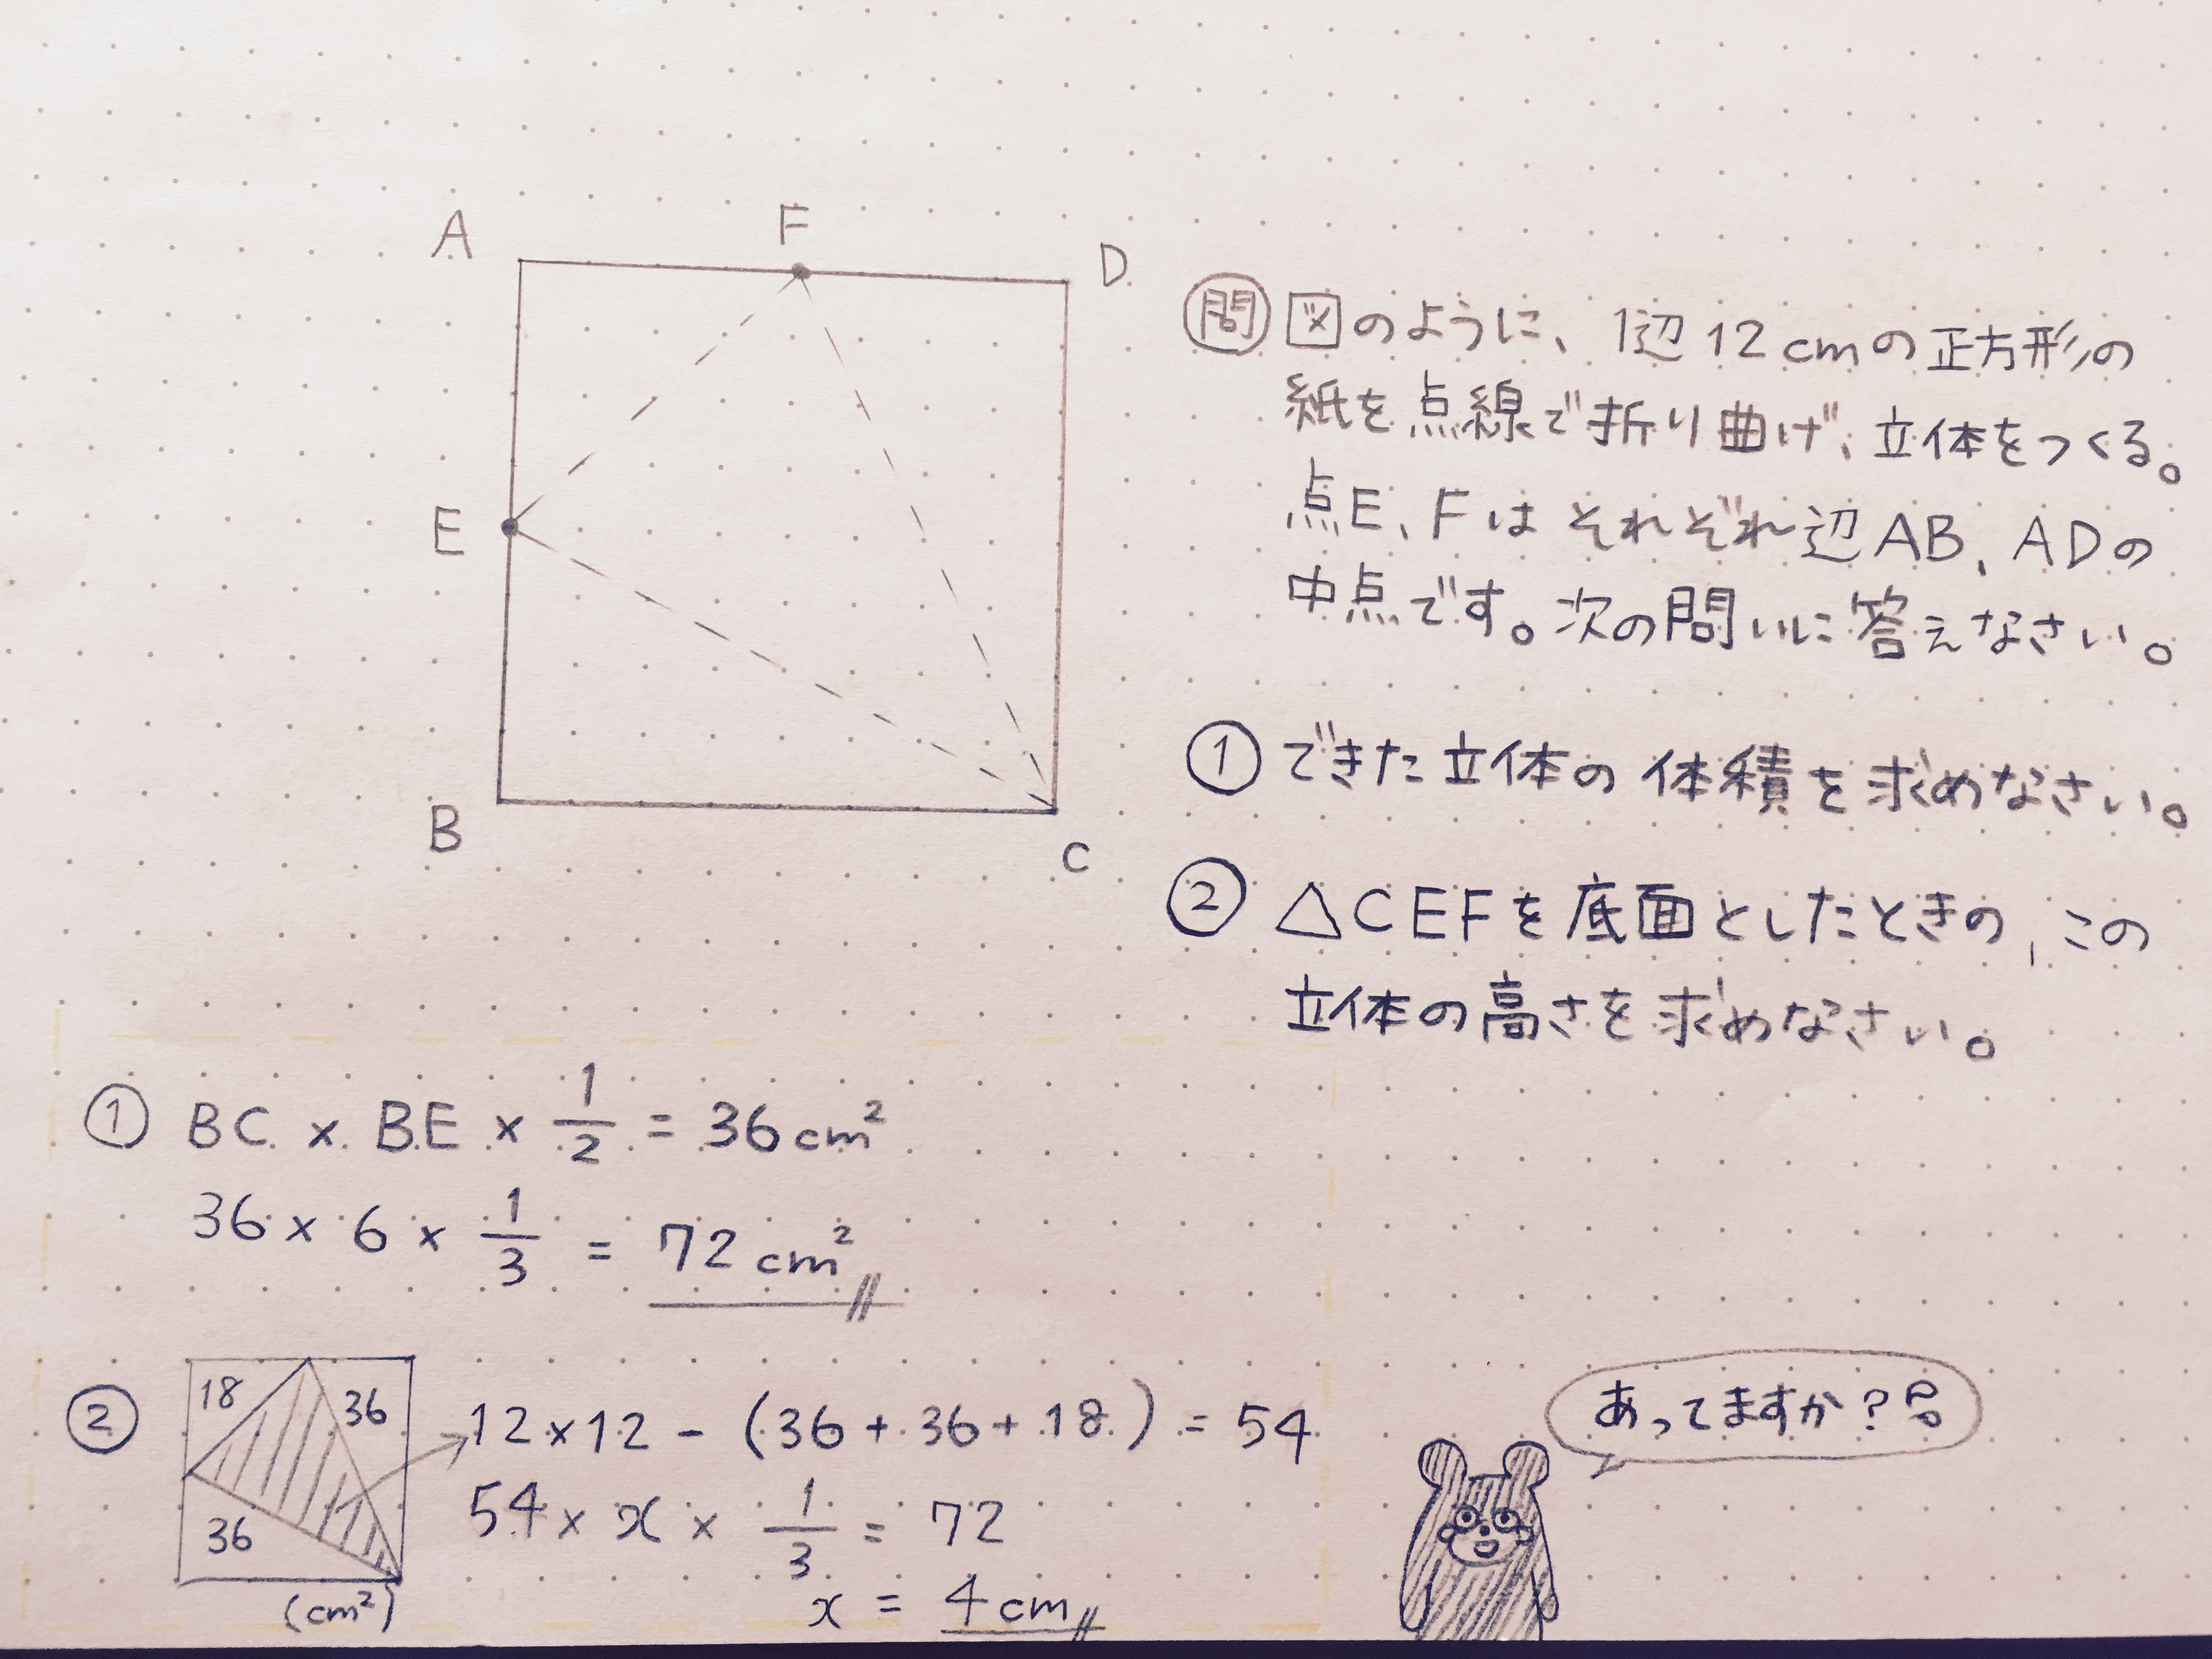 A
F
D
E
B
C
問 図のように、1辺12cmの正方形の
紙を点線で折り曲げ、立体をつくる。
点E、Fはそれぞれ辺AB、ADの
中点です。次の問いに答えなさい。
① できた立体の体積を求めなさい。
② △CEFを底面としたときの、この
立体の高さを求めなさい。
① BC × BE × 1/2 = 36cm²
36 × 6 × 1/3 = 72cm²
②
18
36
36
(cm²)
12×12 - (36+36+18) = 54
54 × x × 1/3 = 72
x = 4cm
あってますか??